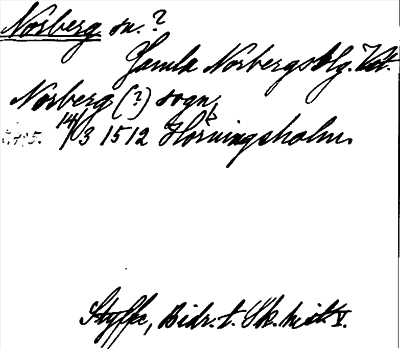 Norberg sn. ?
Gamla Norbergs blg. Vstm.
Norberg (?) sogn
14/3 1512 Horningsholm
Styffe, Bidr. t. Sk. hist. V.